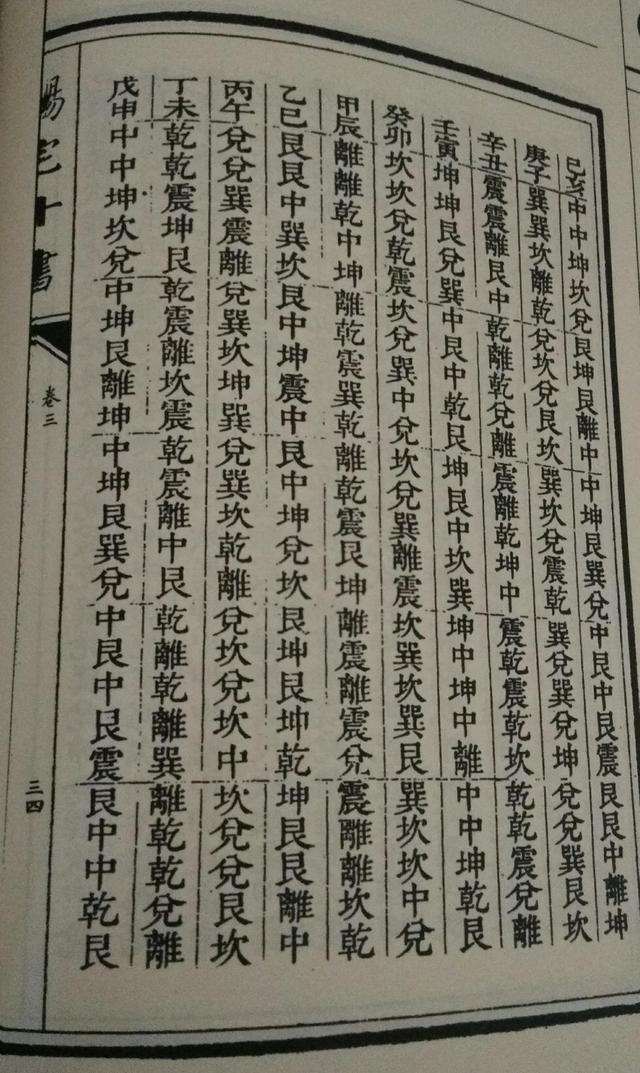 己亥中中坤坎兌艮坤艮離中中坤艮巽兌中艮中艮震艮艮中離坤
庚子巽巽坎離乾兌坎兌艮坎巽坎兌震乾巽兌巽兌坤兌兌巽艮坎
辛丑震震離艮中乾離乾兌離震離乾坤中震乾震乾坎乾乾震兌離
壬寅坤坤艮兌巽中艮中乾艮坤艮中坎巽坤中坤中離中中坤乾艮
癸卯坎坎兌乾震坎兌巽中兌坎兌巽離震坎巽坎巽艮巽坎坎中兌
甲辰離離乾中坤離乾震巽乾離乾震艮坤離震離震兌震離離坎乾
乙巳艮艮中巽坎艮中坤震中艮中坤兌坎艮坤艮坤乾坤艮艮離中
丙午兌兌巽震離兌巽坎坤巽兌巽坎乾離兌坎兌坎中坎兌兌艮坎
丁未乾乾震坤艮乾震離坎震乾震離中艮乾離乾離巽離乾乾兌離
戊申中中坤坎兌中坤艮離坤中坤艮巽兌中艮中艮震艮中中乾艮
陽宅十書
卷三
三四